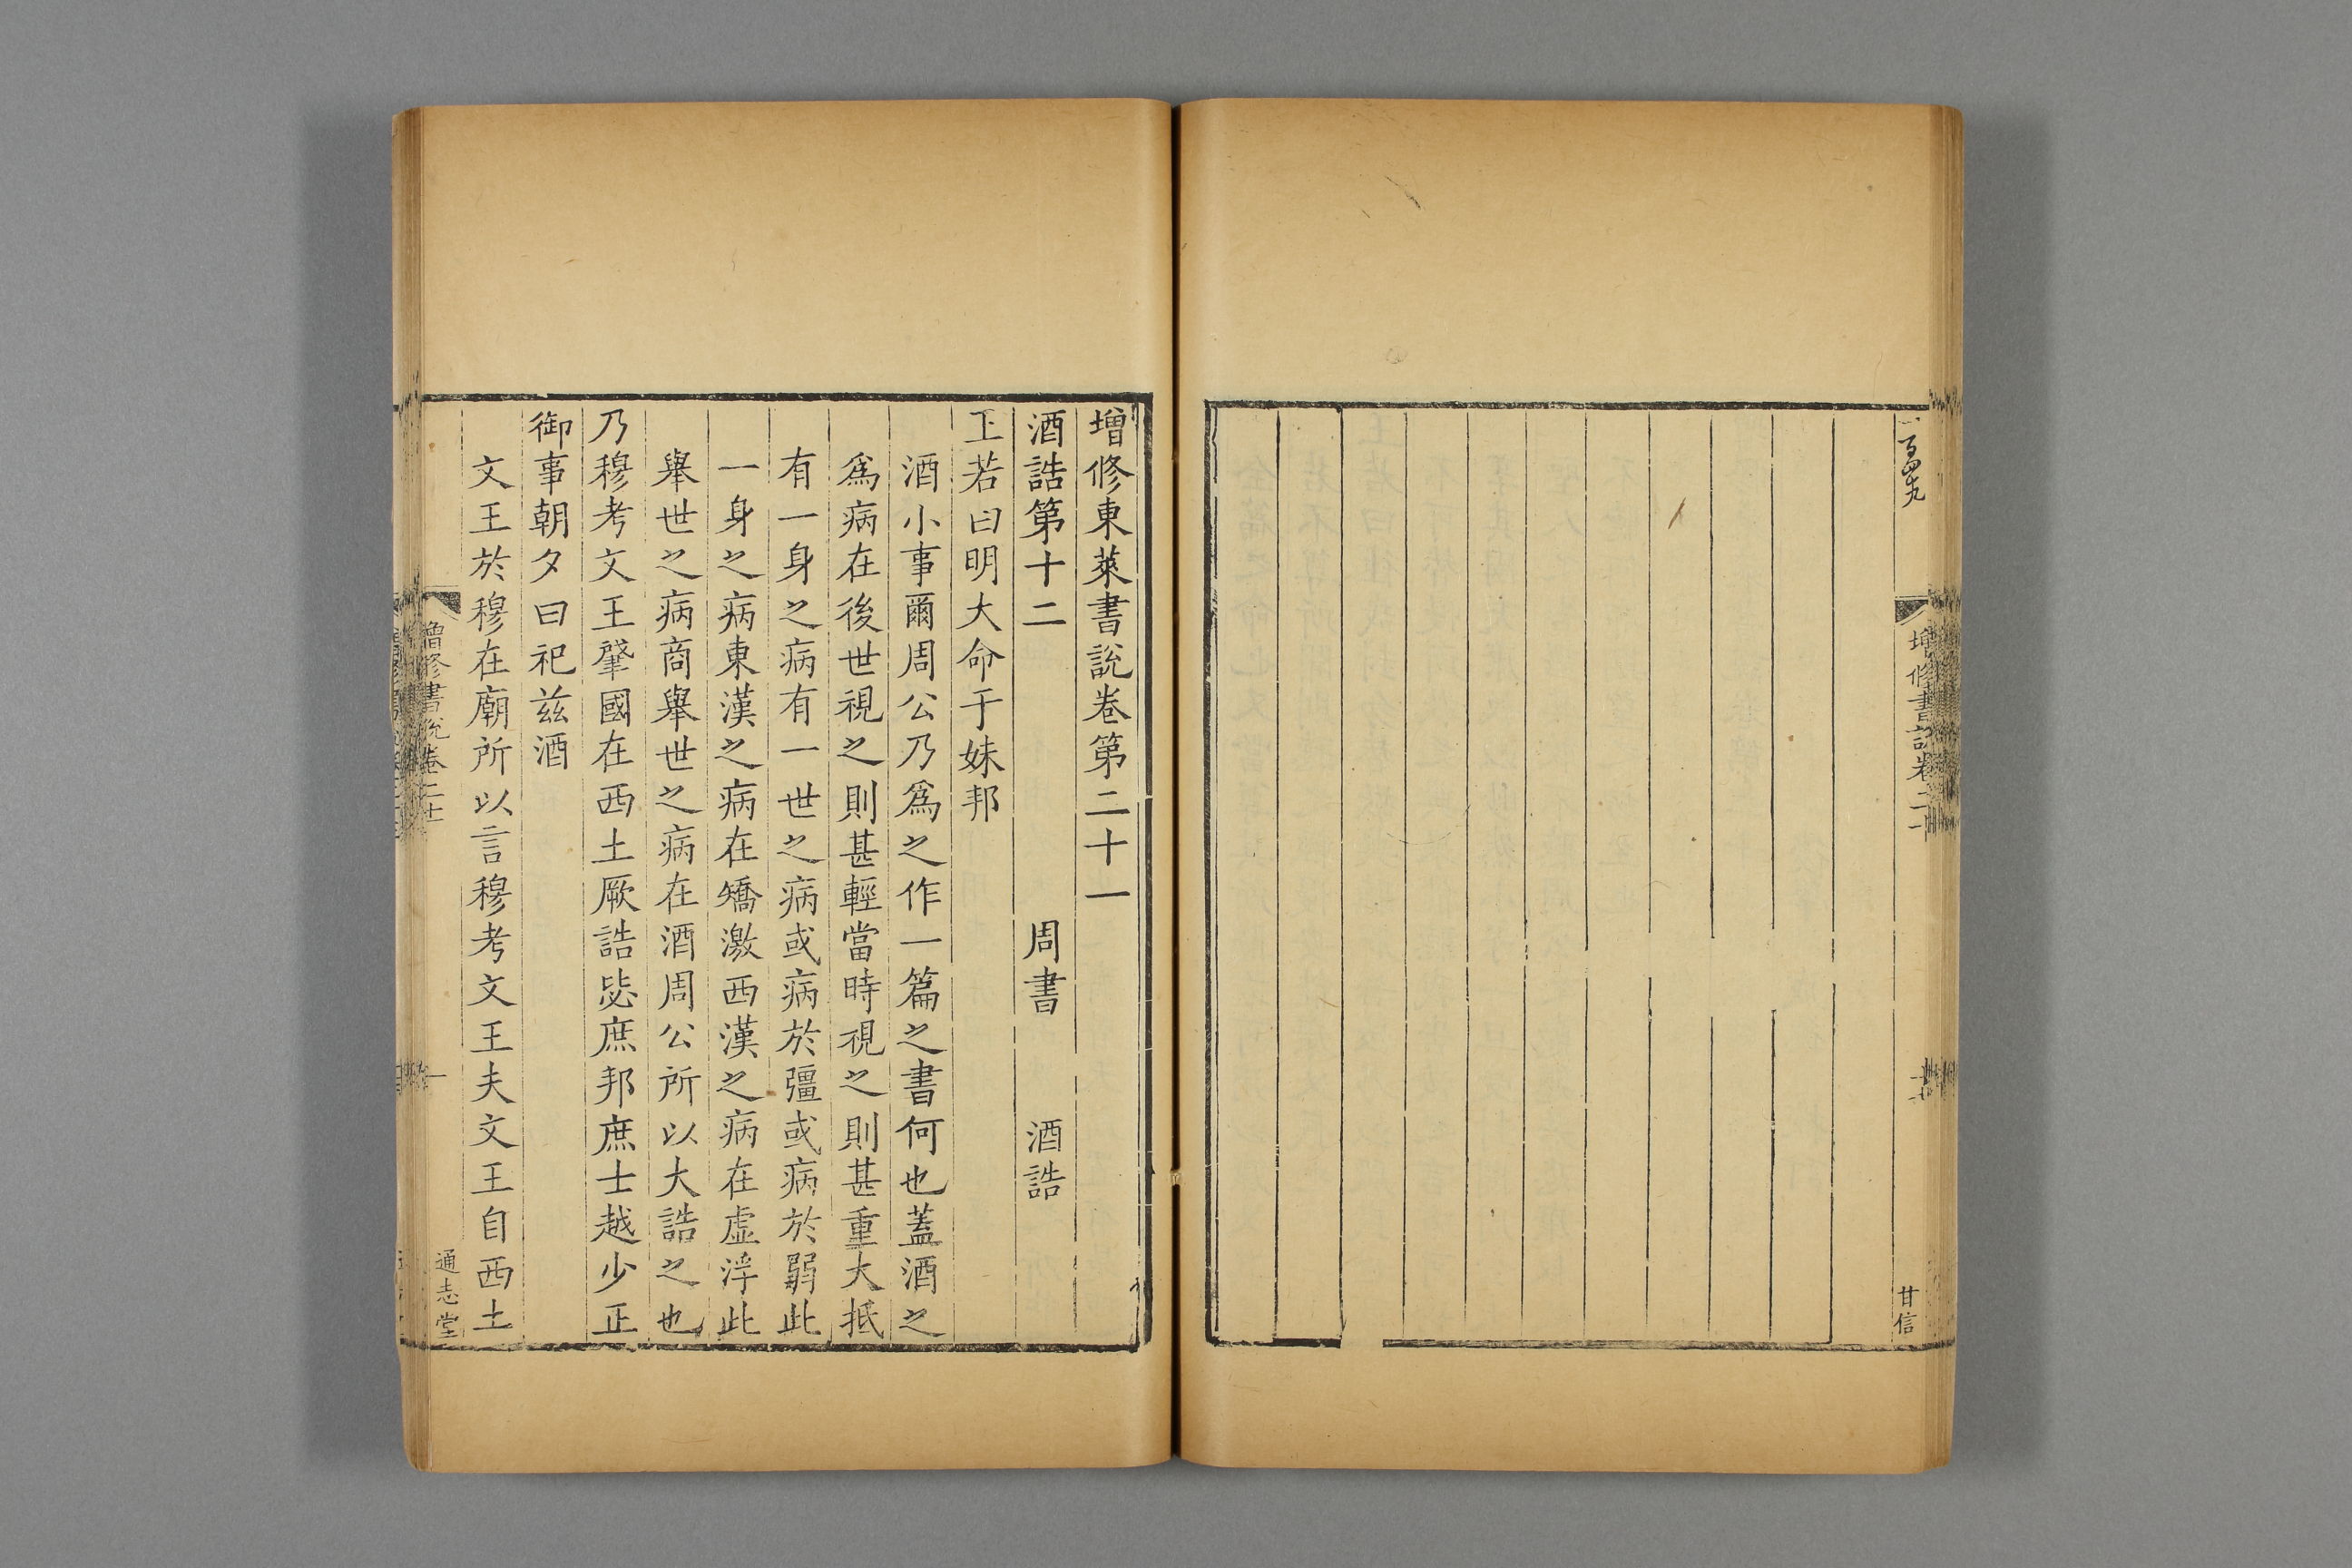 一百四九
增修書説卷二十
甘信
增修東萊書說卷第二十一
酒誥第十二　周書　酒誥
王若曰明大命于妹邦
酒小事爾周公乃爲之作一篇之書何也蓋酒之
爲病在後世視之則甚輕當時視之則甚重大抵
有一身之病有一世之病或病於彊或病於弱此
一身之病東漢之病在矯激西漢之病在虛浮此
舉世之病商舉世之病在酒周公所以大誥之也
乃穆考文王肇國在西土厥誥毖庶邦庶士越少正
御事朝夕曰祀兹酒
文王於穆在廟所以言穆考文王夫文王自西土
增修書説卷二十一
一
通志堂